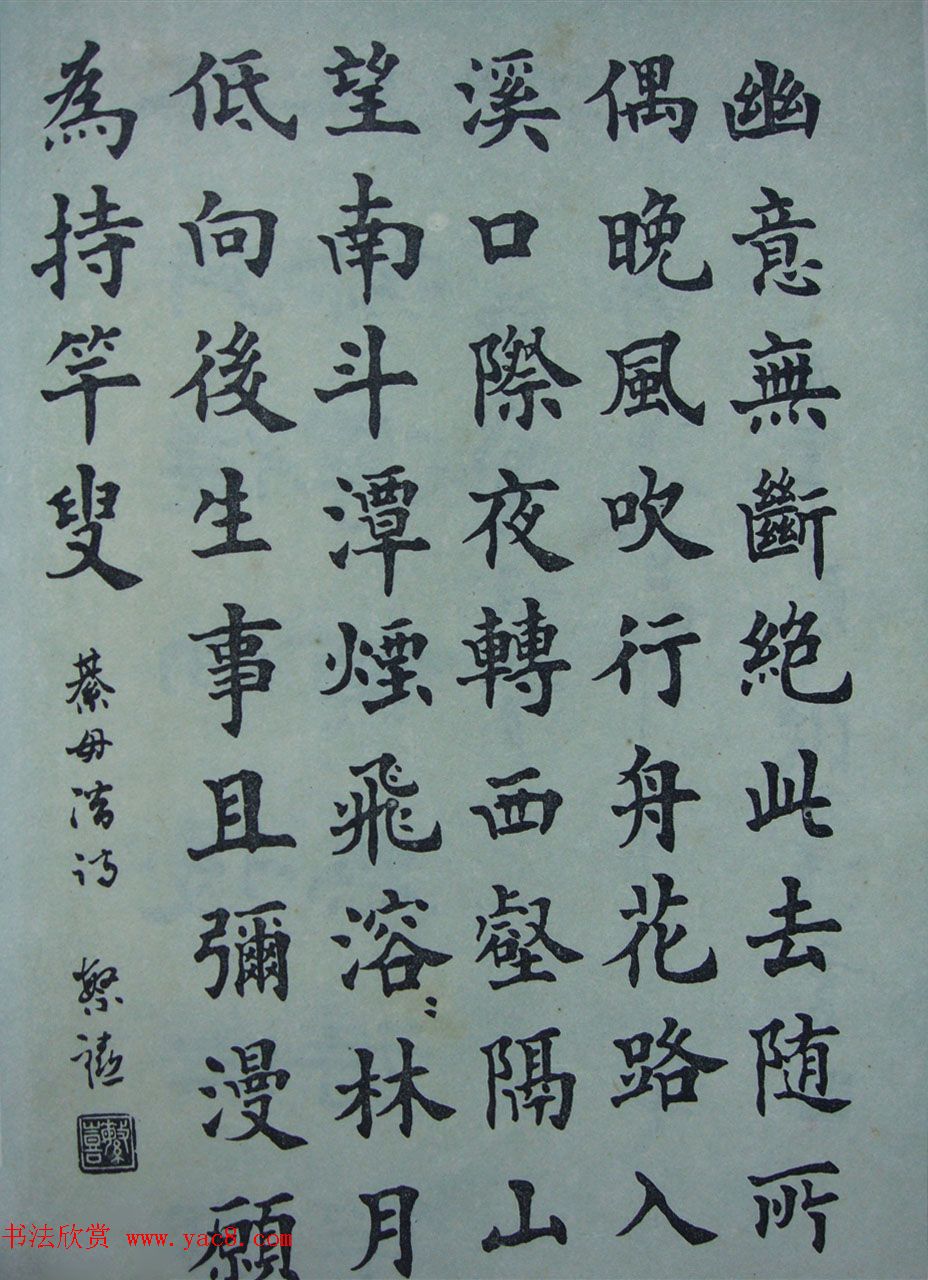 幽意無斷絶此去随所
偶晚風吹行舟花路入
溪口際夜轉西壑隔山
望南斗潭煙飛溶〻林月
低向後生事且彌漫願
為持竿叟
綦毋潛詩
书法欣赏 www.yac8.com